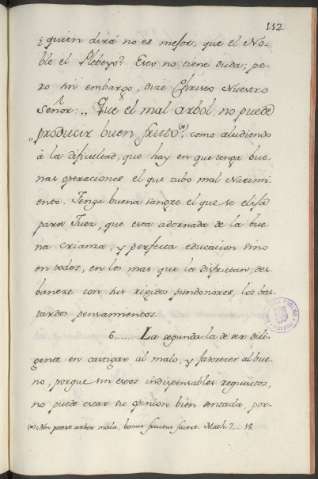 112
¿quien dirà no es mejor, que el No-
ble el Plebeyo? Esto no tiene duda; pe-
ro sin embargo, dize Christo Nuestro
Señor: Que el mal arbol no puede
producir buen fruto (*) como aludiendo
à la dificultad, que hay en que tenga bue-
nas operaciones el que tubo mal Nacimi-
ento. Tenga buena sangre el que se elija
para Juez, que esta adornada de la bue-
na crianza, y perfecta educacion sino
en todos, en los mas que la disfrutan, des-
banece con sus rigidos pundonores, los bas-
tardos pensamientos.
6. La segunda la de ser dili-
gente en castigar al malo, y favorecer al bue-
no, porque sin estos indispensables requisitos,
no puede estar su opinion bien sentada, por-
(*) Non potest arbor mala, bonus fructus facere. Math. 7. 18.